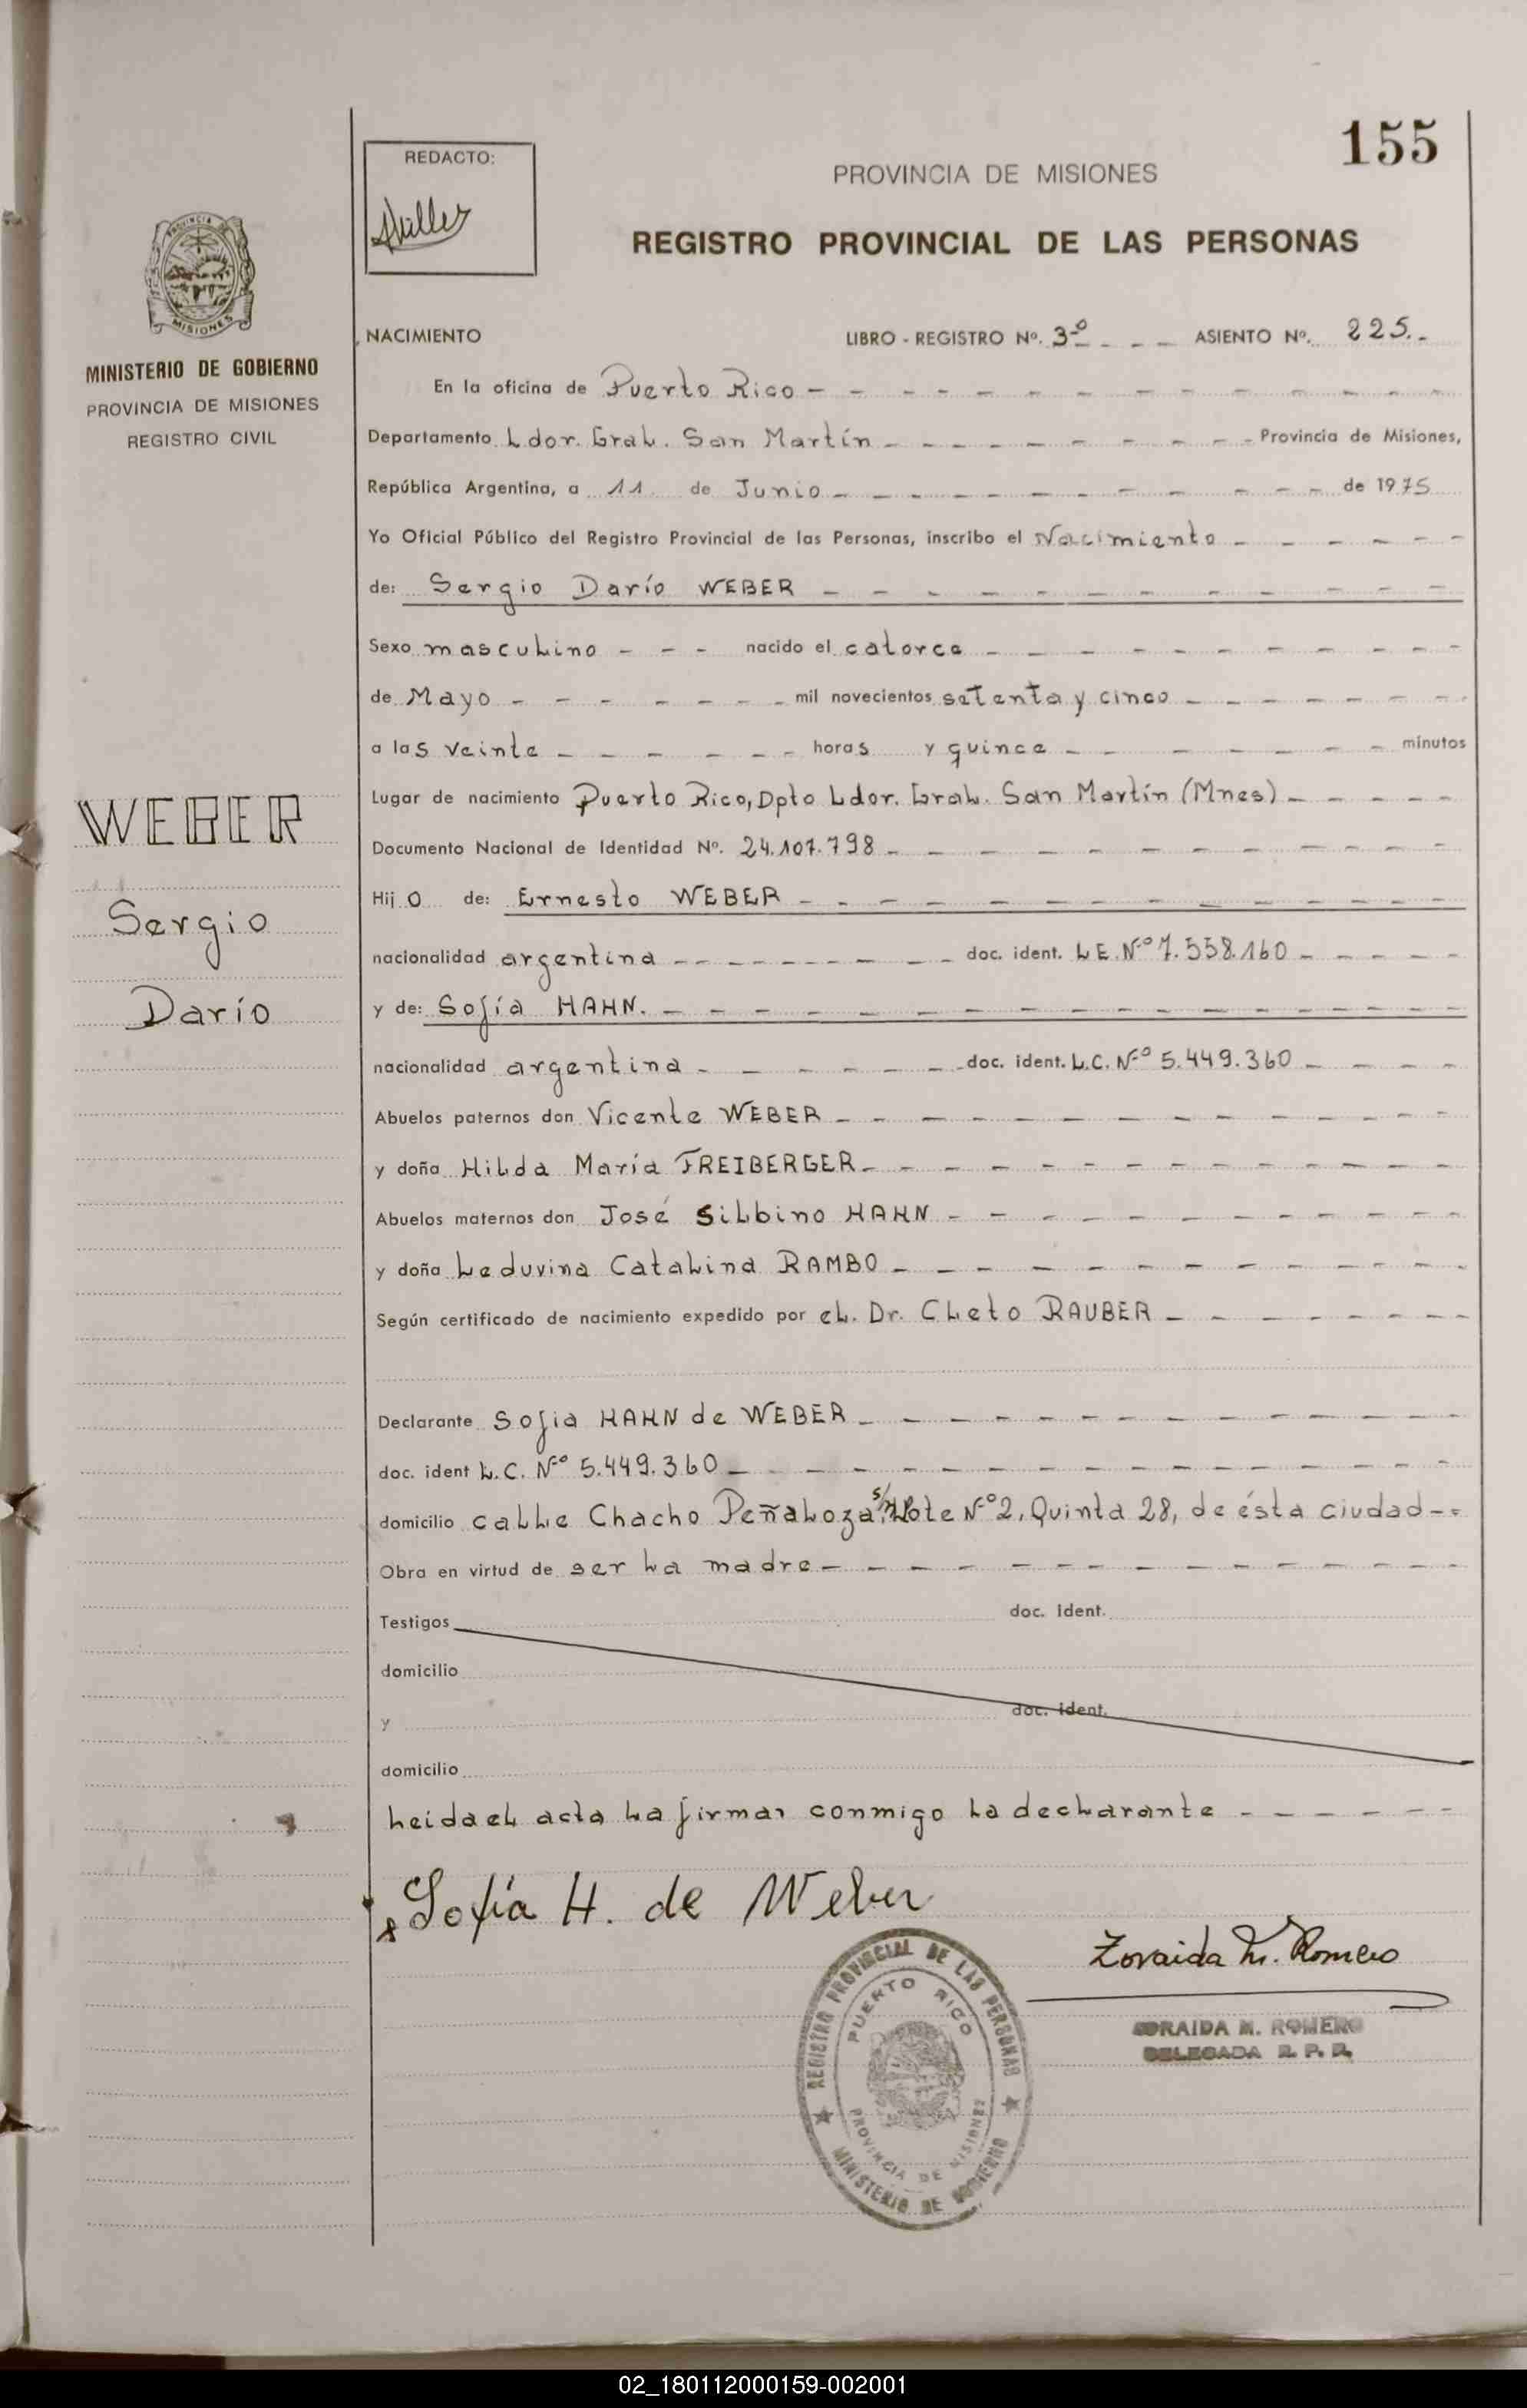 155
REDACTO:
PROVINCIA DE MISIONES
REGISTRO PROVINCIAL DE LAS PERSONAS
PROVINCIA DE
MISIONES
MINISTERIO DE GOBIERNO
PROVINCIA DE MISIONES
REGISTRO CIVIL
NACIMIENTO LIBRO - REGISTRO Nº. 3º - - - ASIENTO Nº. 225.-
En la oficina de Puerto Rico -
Departamento Ldor. Gral. San Martín - Provincia de Misiones,
República Argentina, a 11 de Junio - de 1975
Yo Oficial Público del Registro Provincial de las Personas, inscribo el Nacimiento -
de: Sergio Darío WEBER -
Sexo masculino - - - nacido el catorce -
de Mayo - mil novecientos setenta y cinco -
a las veinte - horas y quince - minutos
WEBER
Sergio
Darío
Lugar de nacimiento Puerto Rico, Dpto Ldor. Gral. San Martín (Mnes) -
Documento Nacional de Identidad Nº. 24.107.798 -
Hijo de: Ernesto WEBER -
nacionalidad argentina - doc. ident. L.E. Nº 7.558.160 -
y de: Sofía HAHN. -
nacionalidad argentina - doc. ident. L.C. Nº 5.449.360 -
Abuelos paternos don Vicente WEBER -
y doña Hilda María FREIBERGER -
Abuelos maternos don José Silbino HAHN -
y doña Leduvina Catalina RAMBO -
Según certificado de nacimiento expedido por el. Dr. Cleto RAUBER -
Declarante Sofia HAHN de WEBER -
doc. ident L.C. Nº 5.449.360 -
domicilio calle Chacho Peñaloza s/n Lote Nº 2, Quinta 28, de ésta ciudad -
Obra en virtud de ser la madre -
Testigos doc. ident.
domicilio
y doc. ident.
domicilio
Leida el acta la firma conmigo la declarante -
Sofía H. de Weber
Zoraida M. Romero
ZORAIDA M. ROMERO
DELEGADA R. P. P.
REGISTRO PROVINCIAL DE LAS PERSONAS
PUERTO RICO
PROVINCIA DE MISIONES
MINISTERIO DE GOBIERNO
02_180112000159-002001